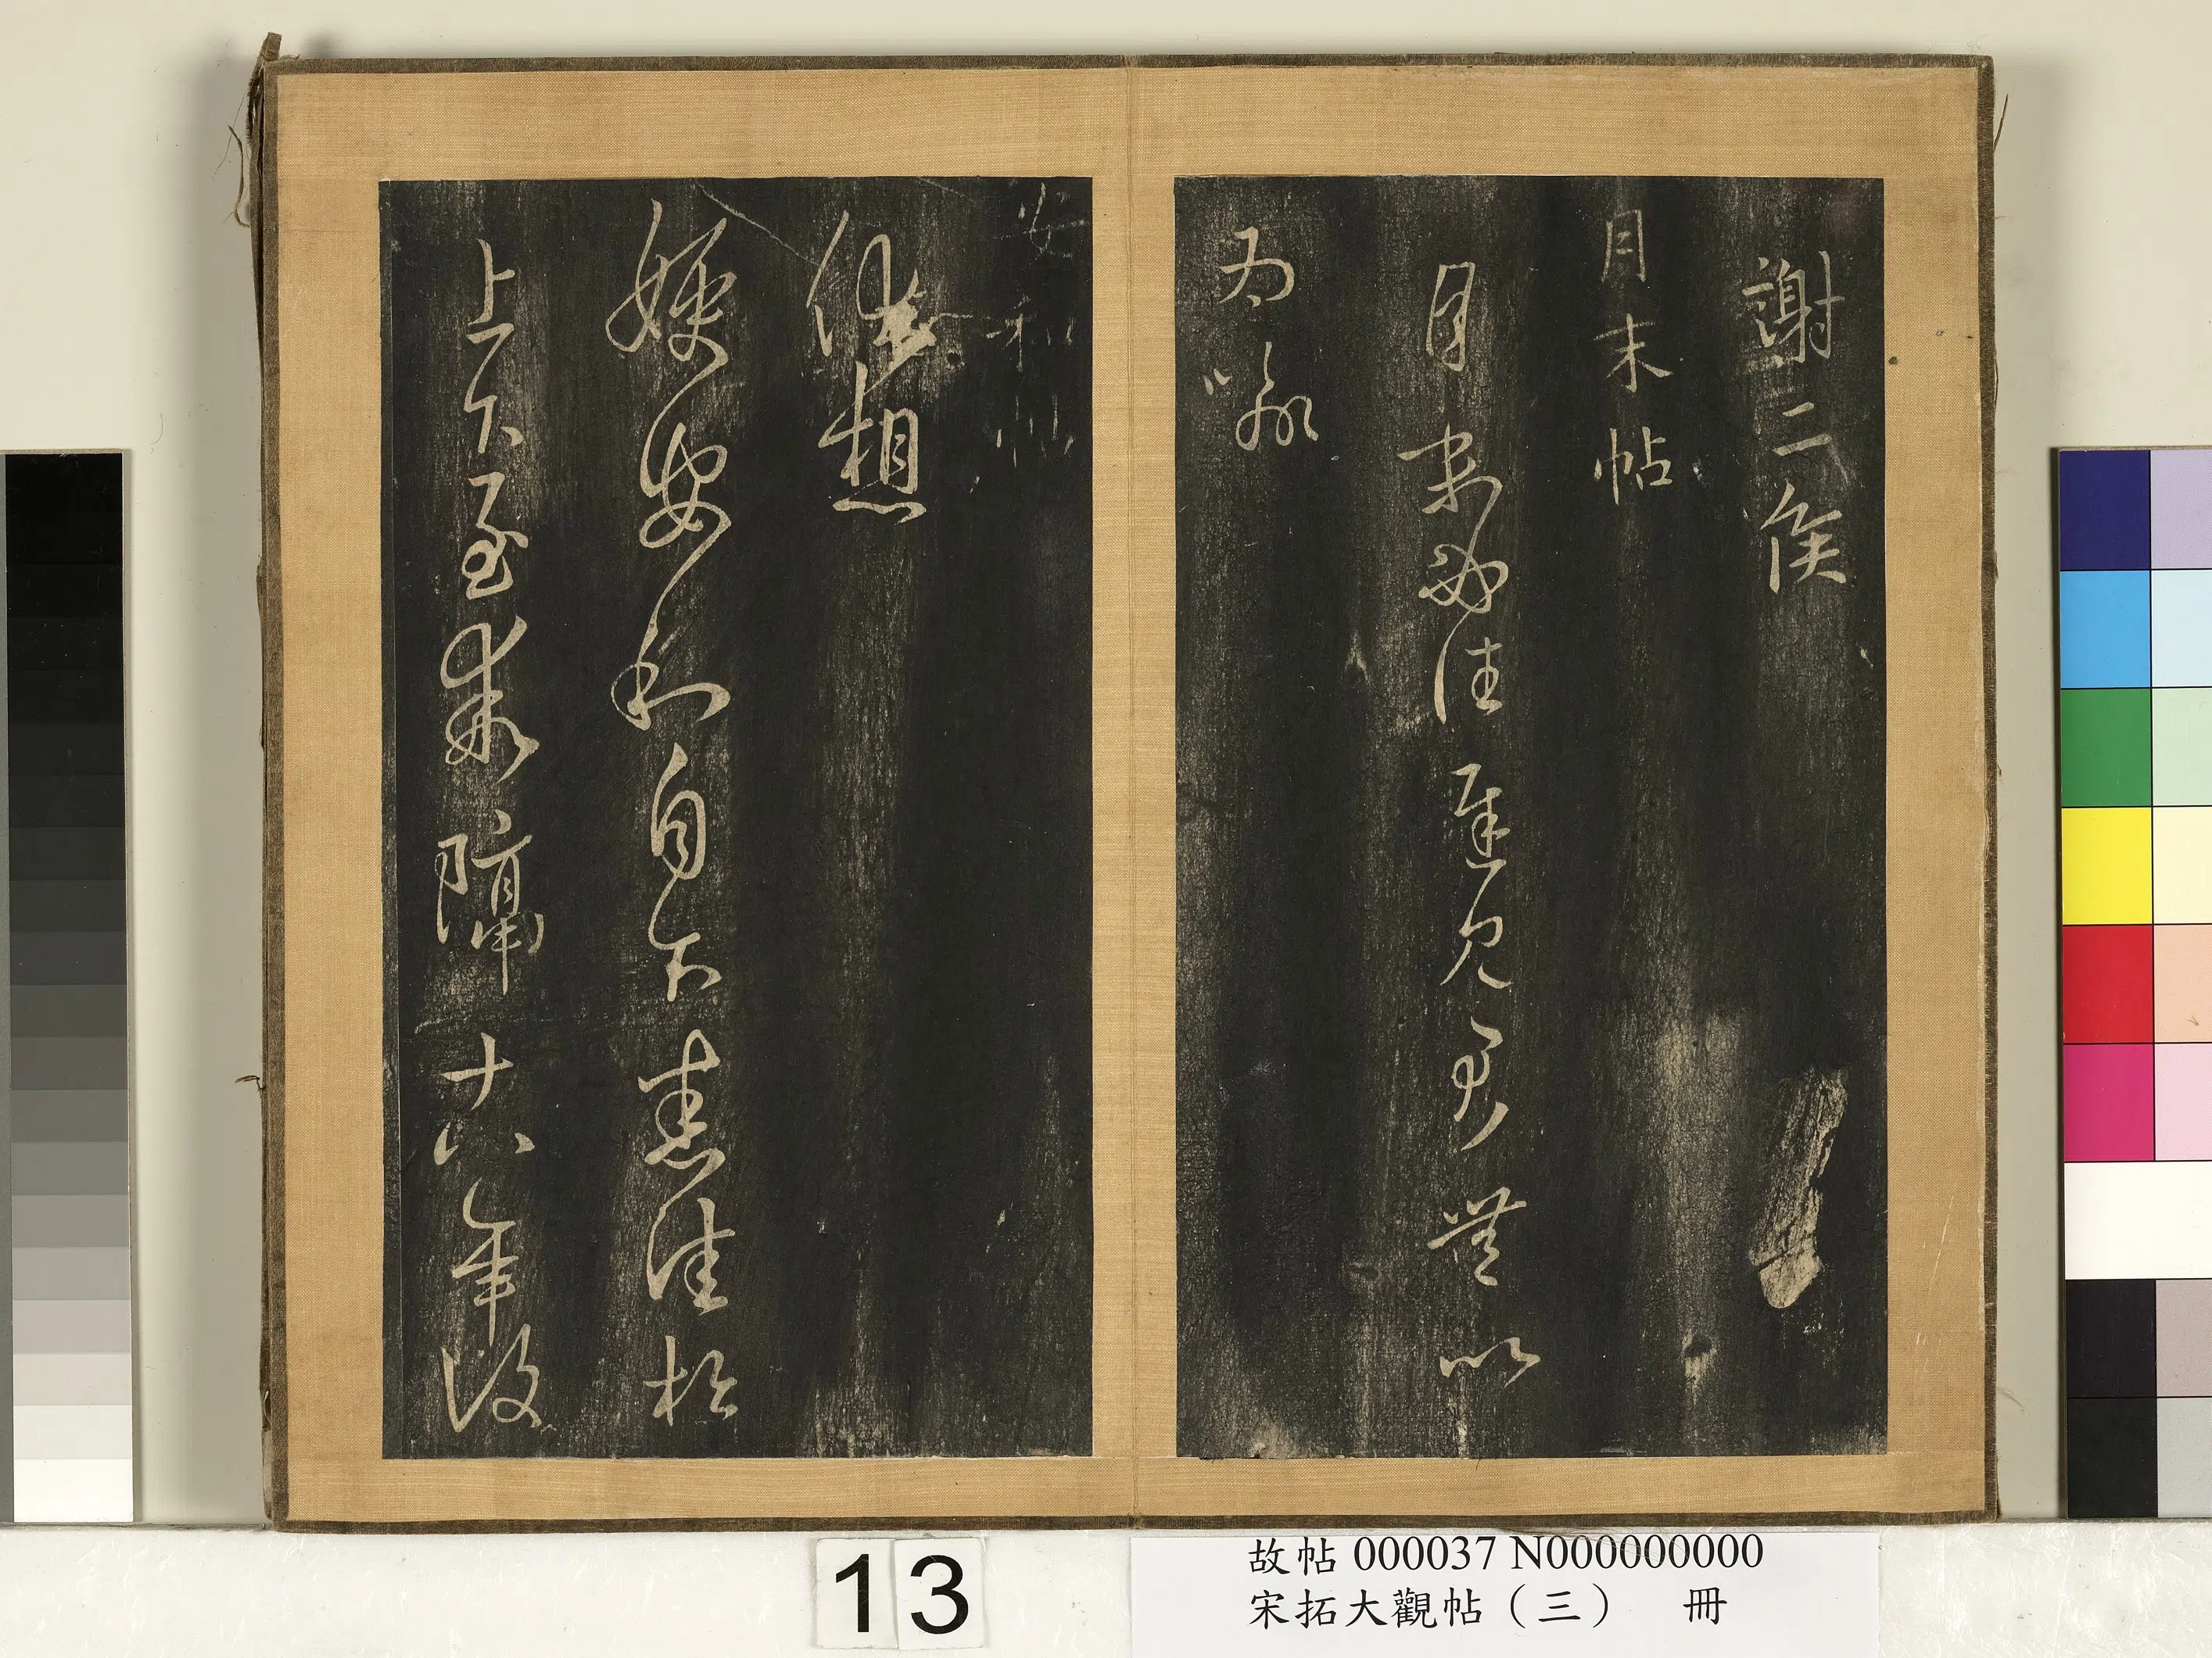 謝二侯
月末帖
月末必往遲見君無以
為喻
安和帖
他想
嫂安和自下悉佳松
上下至乖隔十八年復
13
故帖 000037 N000000000
宋拓大觀帖（三） 冊